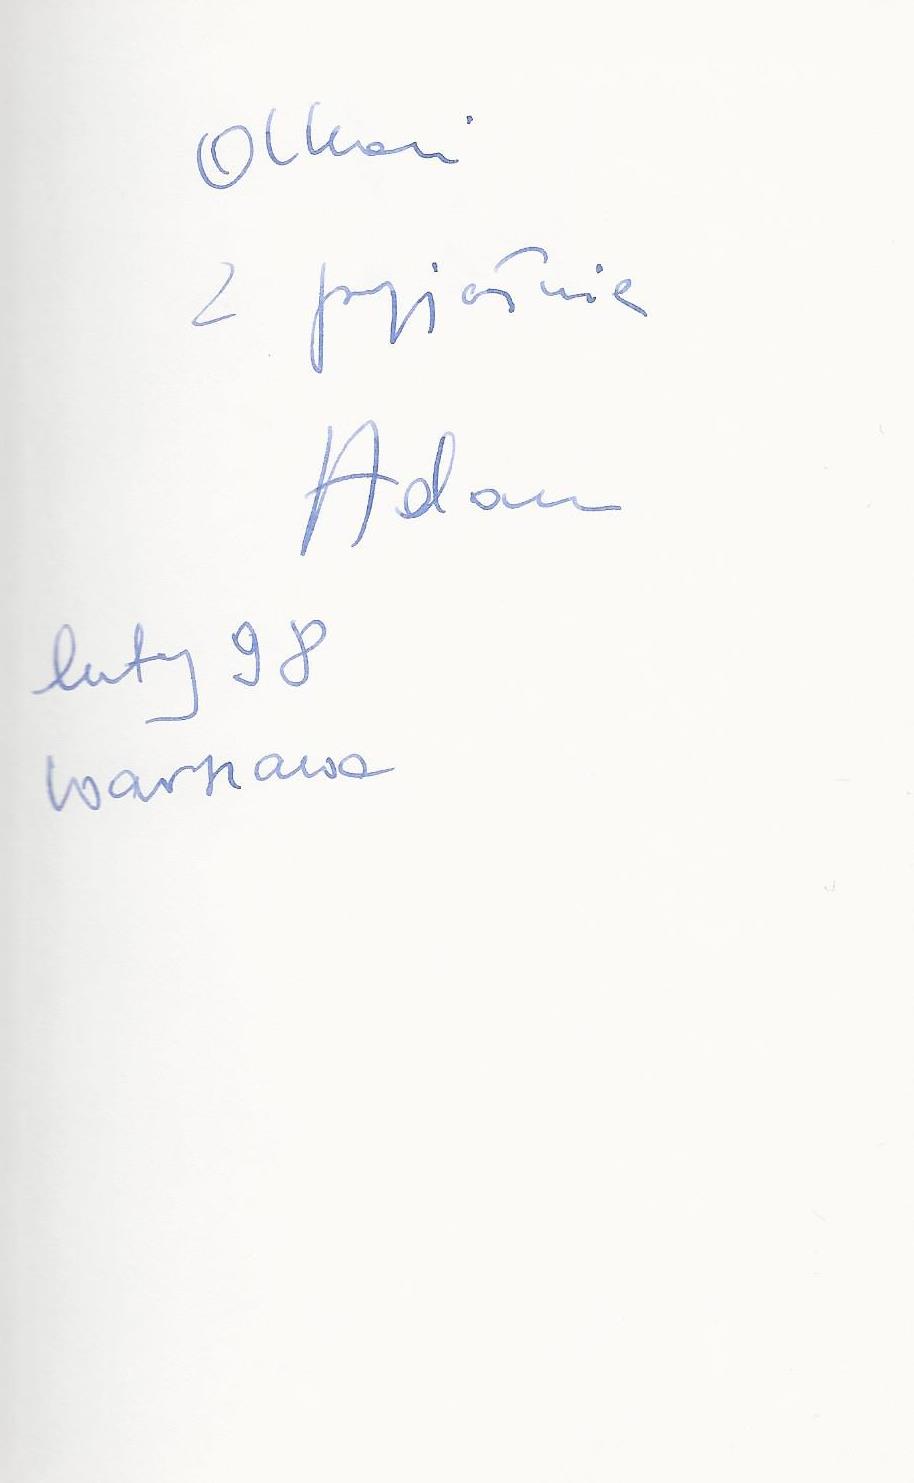 z przyjaźnie
Adam
luty 98
Warszawa